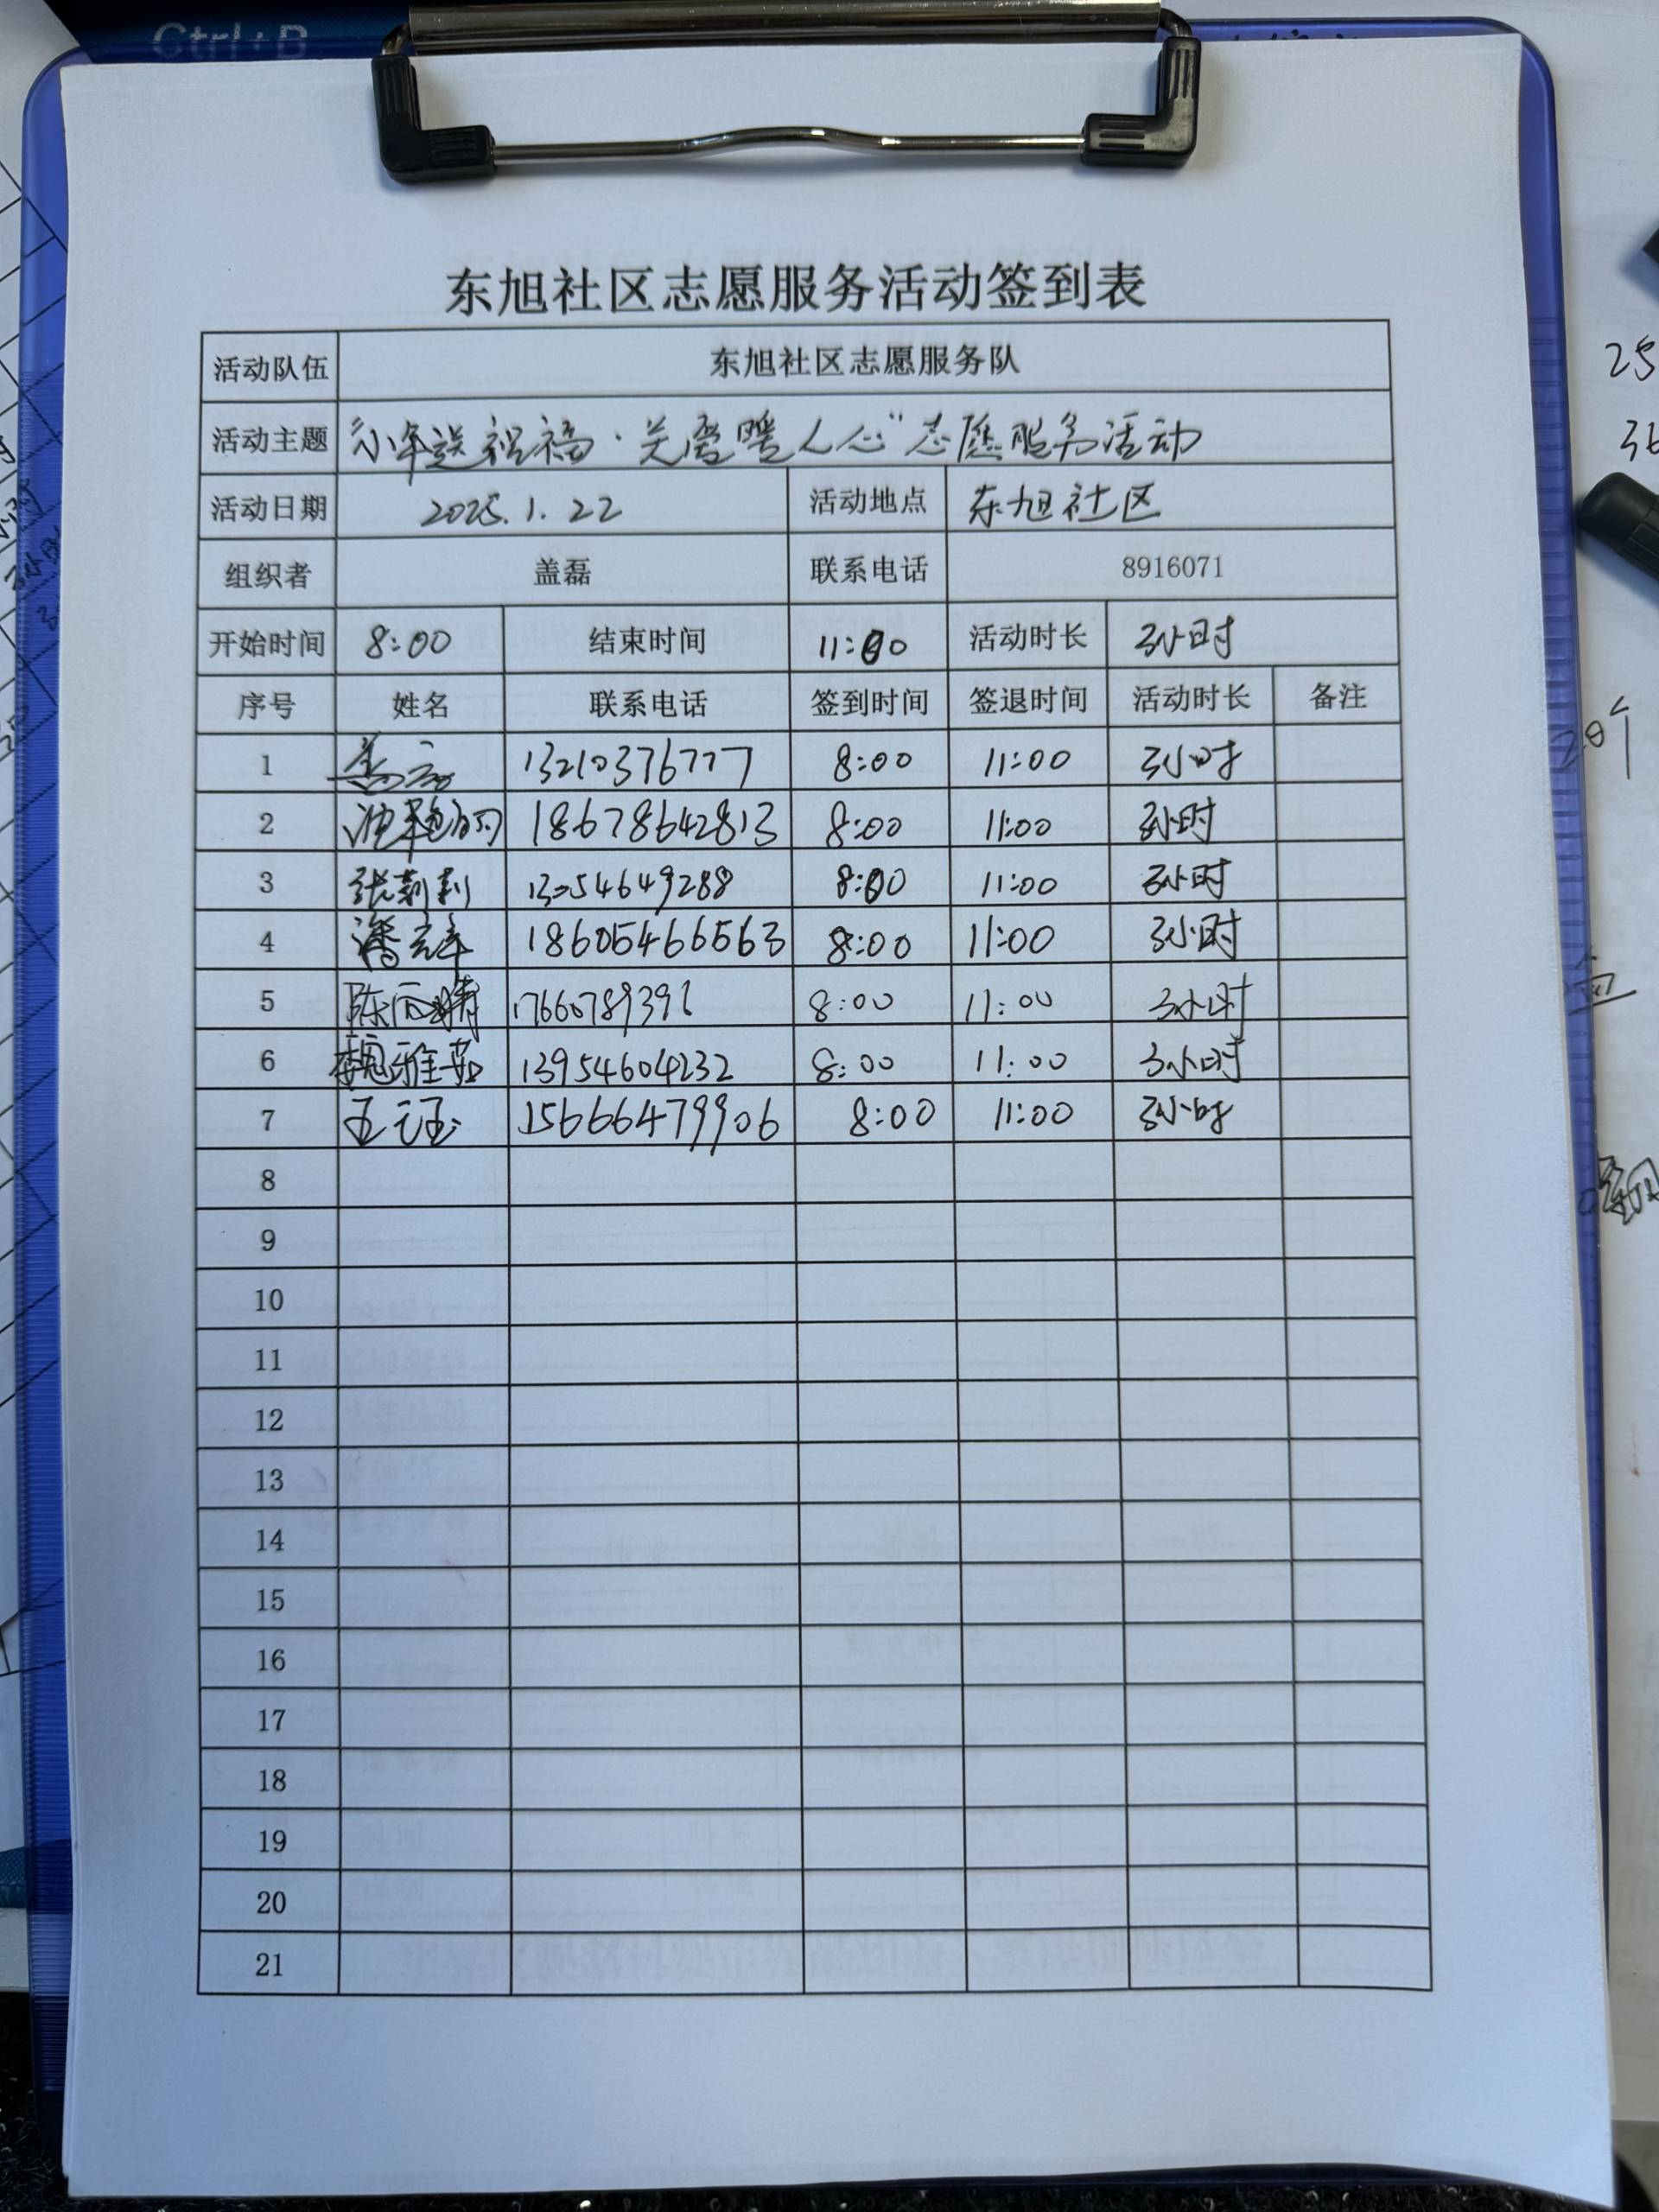 Ctrl+B
东旭社区志愿服务活动签到表
活动队伍 东旭社区志愿服务队
活动主题 “小年送祝福·关爱暖人心”志愿服务活动
活动日期 2025.1.22 活动地点 东旭社区
组织者 盖磊 联系电话 8916071
开始时间 8:00 结束时间 11:00 活动时长 3小时
序号 姓名 联系电话 签到时间 签退时间 活动时长 备注
1 13210376777 8:00 11:00 3小时
2 18678642813 8:00 11:00 3小时
3 张莉莉 13054649288 8:00 11:00 3小时
4 潘 18605466563 8:00 11:00 3小时
5 陈雨晴 17660789391 8:00 11:00 3小时
6 雅茹 13954604232 8:00 11:00 3小时
7 王元玉 15666479906 8:00 11:00 3小时
8
9
10
11
12
13
14
15
16
17
18
19
20
21